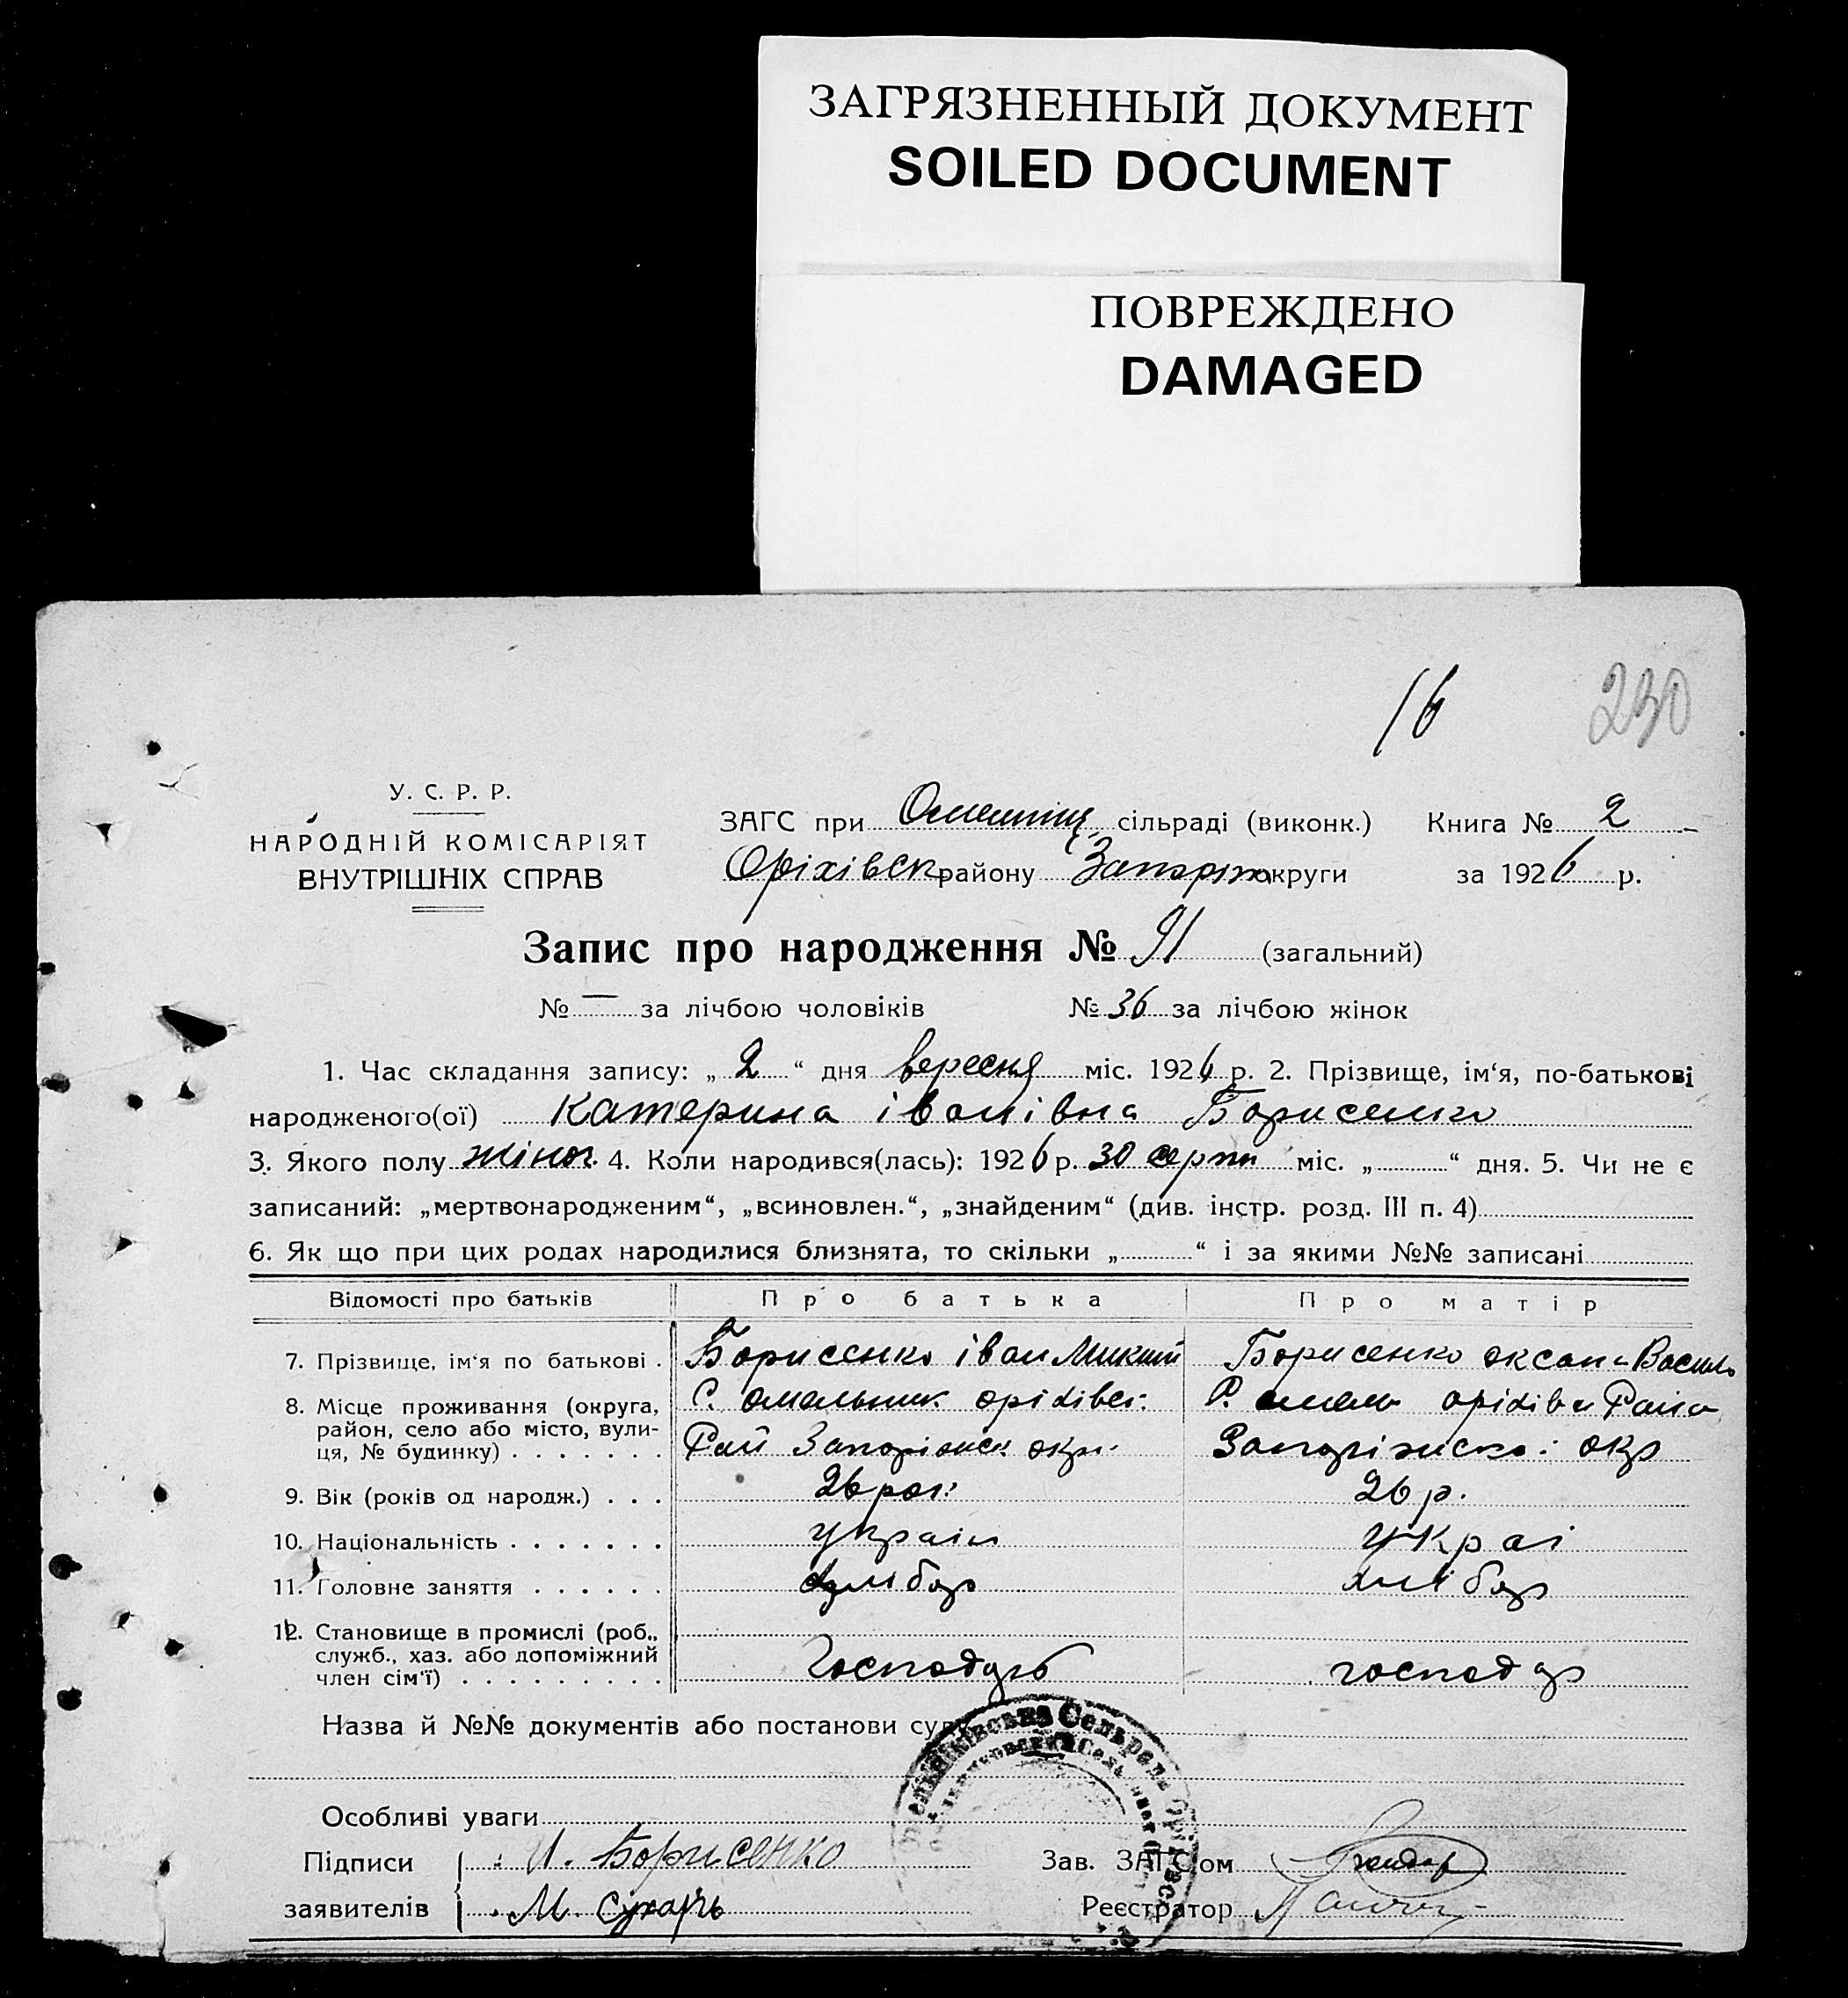 ЗАГРЯЗНЕННЫЙ ДОКУМЕНТ
SOILED DOCUMENT
ПОВРЕЖДЕНО
DAMAGED
16 230
У. С. Р. Р.
НАРОДНІЙ КОМІСАРІЯТ
ВНУТРІШНІХ СПРАВ
ЗАГС при сільраді (виконк.) Книга № 2
Оріхівск району Запоріж округи за 1926 р.
Запис про народження № 91 (загальний)
№ — за лічбою чоловіків № 36 за лічбою жінок
1. Час складання запису: „ 2 “ дня вересня міс. 1926 р. 2. Прізвище, ім‘я, по-батькові
народженого(ої) Катерина івонівна Борисенко
3. Якого полу жіноч. 4. Коли народився(лась): 1926 р. 30 серпн міс. „ “ дня. 5. Чи не є
записаний: „мертвонародженим“, „всиновлен.“, „знайденим“ (див. інстр. розд. III п. 4)
6. Як що при цих родах народилися близнята, то скільки „ “ і за якими №№ записані
Відомості про батьків Про батька Про матір
7. Прізвище, ім‘я по батькові . Борисенко іван Микит Борисенко оксана Василь
8. Місце проживання (округа, район, село або місто, вулиця, № будинку) . . . . . . .
С. омельник. оріхівсь. Рай Запоріжск. окр.
Запоріжско: окр
9. Вік (років од народж.) . . . 26 рок: 26 р.
10. Національність . . . . . . . украін украі
11. Головне заняття . . . . . . хлібор хлібор
12. Становище в промислі (роб., служб., хаз. або допоміжний член сім‘ї) . . . . . . . . . Господарь господар
Назва й №№ документів або постанови суду
Особливі уваги
Підписи И. Борисенко Зав. ЗАГС‘ом
заявителів М. Сухарь Реєстратор